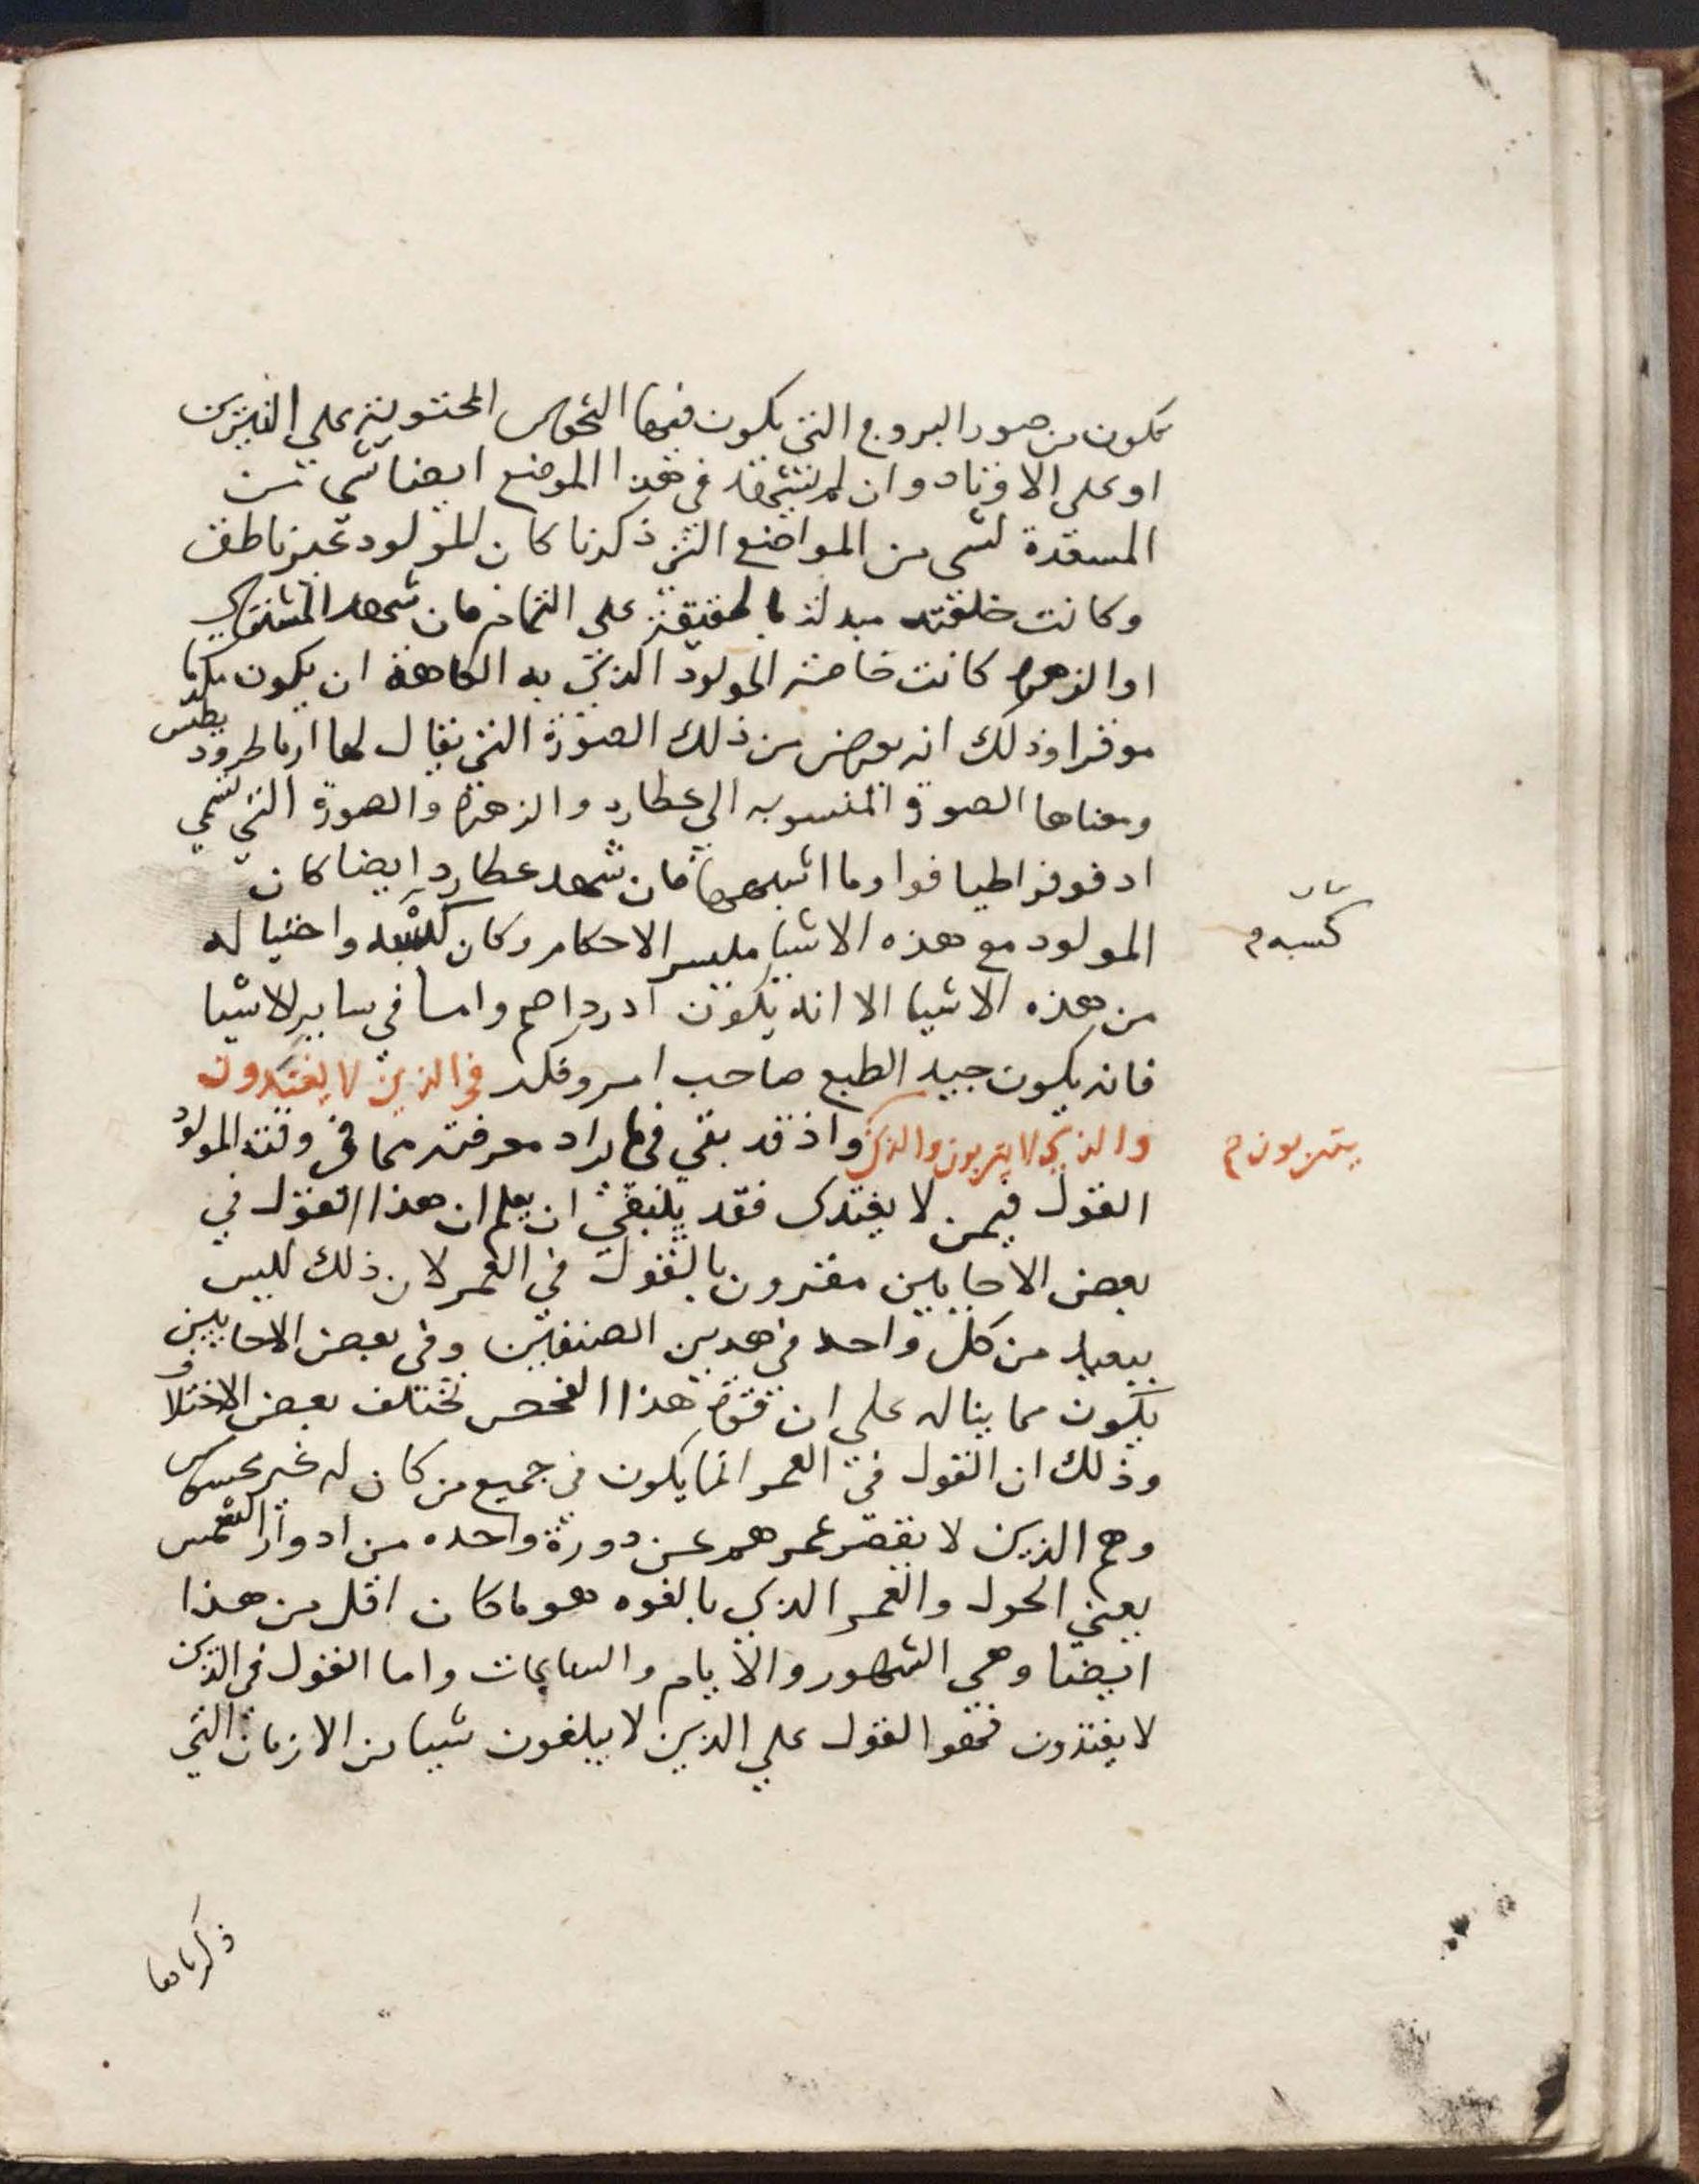 تكون من صور البروج التي يكون فيها النحوس المحتوية علي النيرين
او علي الاوتاد وان لم يشهد في هذا الموضع ايضا شي من
المسعدة لشي من المواضع التي ذكرنا كان المولود غير ناطق
وكانت خلقته مبدلة بالحقيقة علي التمام فان شهد المشتري
او الزهرة كانت خاصة المولود الذي به الكاهة ان يكون مكرما
موقرا وذلك انه يعرض من ذلك الصورة التي يقال لها ارماطرود يطس
ومعناها الصورة المنسوبه الي عطارد والزهرة والصورة التي تسمي
ادفوفراطيا فوا وما اشبهها فان شهد عطارد ايضا كان
المولود مع هذه الاشيا مليسر الاحكام وكان كسبه واحتياله
من هذه الاشيا الا انه يكون ادرداهم واما في ساير الاشيا
فانه يكون جيد الطبع صاحب امر وفكر في الذين لا يغتدون
والذي لا يتربون والذي واذ قد بقي في ما يراد معرفته مما في وقت المولود
القول فيمن لا يغتذي فقد ينبغي ان يعلم ان هذا القول في
بعض الاحايين مقرون بالقول في العمر لان ذلك لليس
ببعيد من كل واحد في هدين الصنفين وفي بعض الاحايين
يكون مما يناله علي ان قوة هذا الفحص تختلف بعض الاختلاف
وذلك ان القول في العمر انما يكون في جميع من كان له غير محسوس
وهم الذين لا يقصر عمرهم عن دورة واحده من ادوار الشمس
يعني الحول والعمر الذي بالقوه هو ما كان اقل من هذا
ايضا وهي الشهور والايام والساعات واما القول في الذين
لا يغتذون فهو القول علي الذين لا يبلغون شيا من الازمان التي
كسبه م
يتربون م